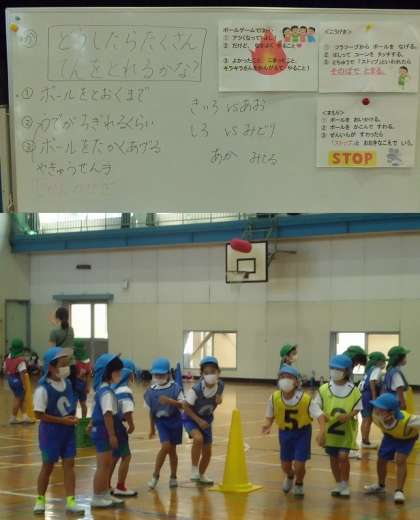 どうしたらたくさん
てんをとれるかな?
① ボールをとおくまで
② うでがちぎれるくらい
③ ボールをたかくあげる
やきゅうせんしゅ
きいろ vs あお
しろ vs みどり
あか みてる
ボールゲームでは…
① アツくなっていい!
② だけど、なかよくやること
③ よかったこと、こまったこと、
キラキラさんをかんがえてやること!
<こうげき>
① フラフープから ボールを なげる。
② はしって コーンを タッチする。
③ とちゅうで「ストップ」といわれたら
そのばで とまる。
<まもり>
① ボールを おいかける。
② ボールを かごんで すわる。
③ ぜんいんが すわったら
「ストップ」と おおきなこえで いう。
STOP
5
2